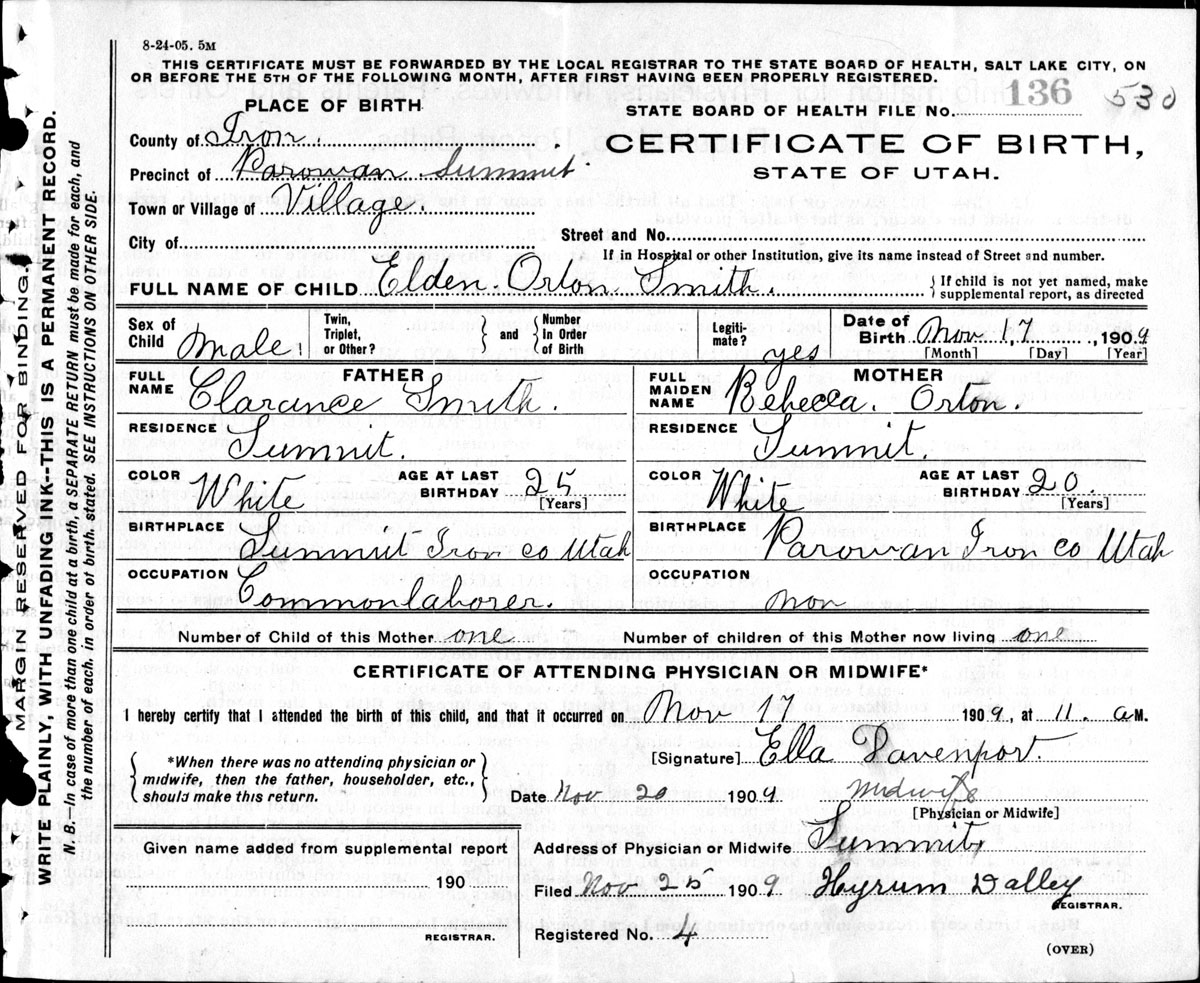 8-24-05. 5M
THIS CERTIFICATE MUST BE FORWARDED BY THE LOCAL REGISTRAR TO THE STATE BOARD OF HEALTH, SALT LAKE CITY, ON
OR BEFORE THE 5TH OF THE FOLLOWING MONTH, AFTER FIRST HAVING BEEN PROPERLY REGISTERED.
PLACE OF BIRTH
STATE BOARD OF HEALTH FILE No. 136 530
County of Iron.
CERTIFICATE OF BIRTH,
STATE OF UTAH.
Precinct of Parowan Summit
Town or Village of Village.
City of
Street and No.
If in Hospital or other Institution, give its name instead of Street and number.
FULL NAME OF CHILD Elden Orton Smith. { If child is not yet named, make supplemental report, as directed
Sex of Child Male Twin, Triplet, or Other? } and { Number In Order of Birth Legiti-mate? yes Date of Birth Nov 17, 1909
[Month] [Day] [Year]
FATHER
FULL NAME Clarance Smith.
RESIDENCE Summit.
COLOR White AGE AT LAST BIRTHDAY 25 [Years]
BIRTHPLACE Summit Iron co Utah
OCCUPATION Common laborer.
MOTHER
FULL MAIDEN NAME Behecca. Orton.
RESIDENCE Summit.
COLOR White AGE AT LAST BIRTHDAY 20. [Years]
BIRTHPLACE Parowan Iron co Utah
OCCUPATION non
Number of Child of this Mother one Number of children of this Mother now living one
CERTIFICATE OF ATTENDING PHYSICIAN OR MIDWIFE*
I hereby certify that I attended the birth of this child, and that it occurred on Nov 17 1909, at 11. a M.
[Signature] Ella Davenport.
{ *When there was no attending physician or
midwife, then the father, householder, etc.,
should make this return. }
Date Nov 20 1909 Midwife
[Physician or Midwife]
Given name added from supplemental report
190
REGISTRAR.
Address of Physician or Midwife Summit
Filed Nov 25 1909 Hyrum Dalley
REGISTRAR.
Registered No. 4
(OVER)
MARGIN RESERVED FOR BINDING.
WRITE PLAINLY, WITH UNFADING INK--THIS IS A PERMANENT RECORD.
N. B.--In case of more than one child at a birth, a SEPARATE RETURN must be made for each, and
the number of each, in order of birth, stated. SEE INSTRUCTIONS ON OTHER SIDE.